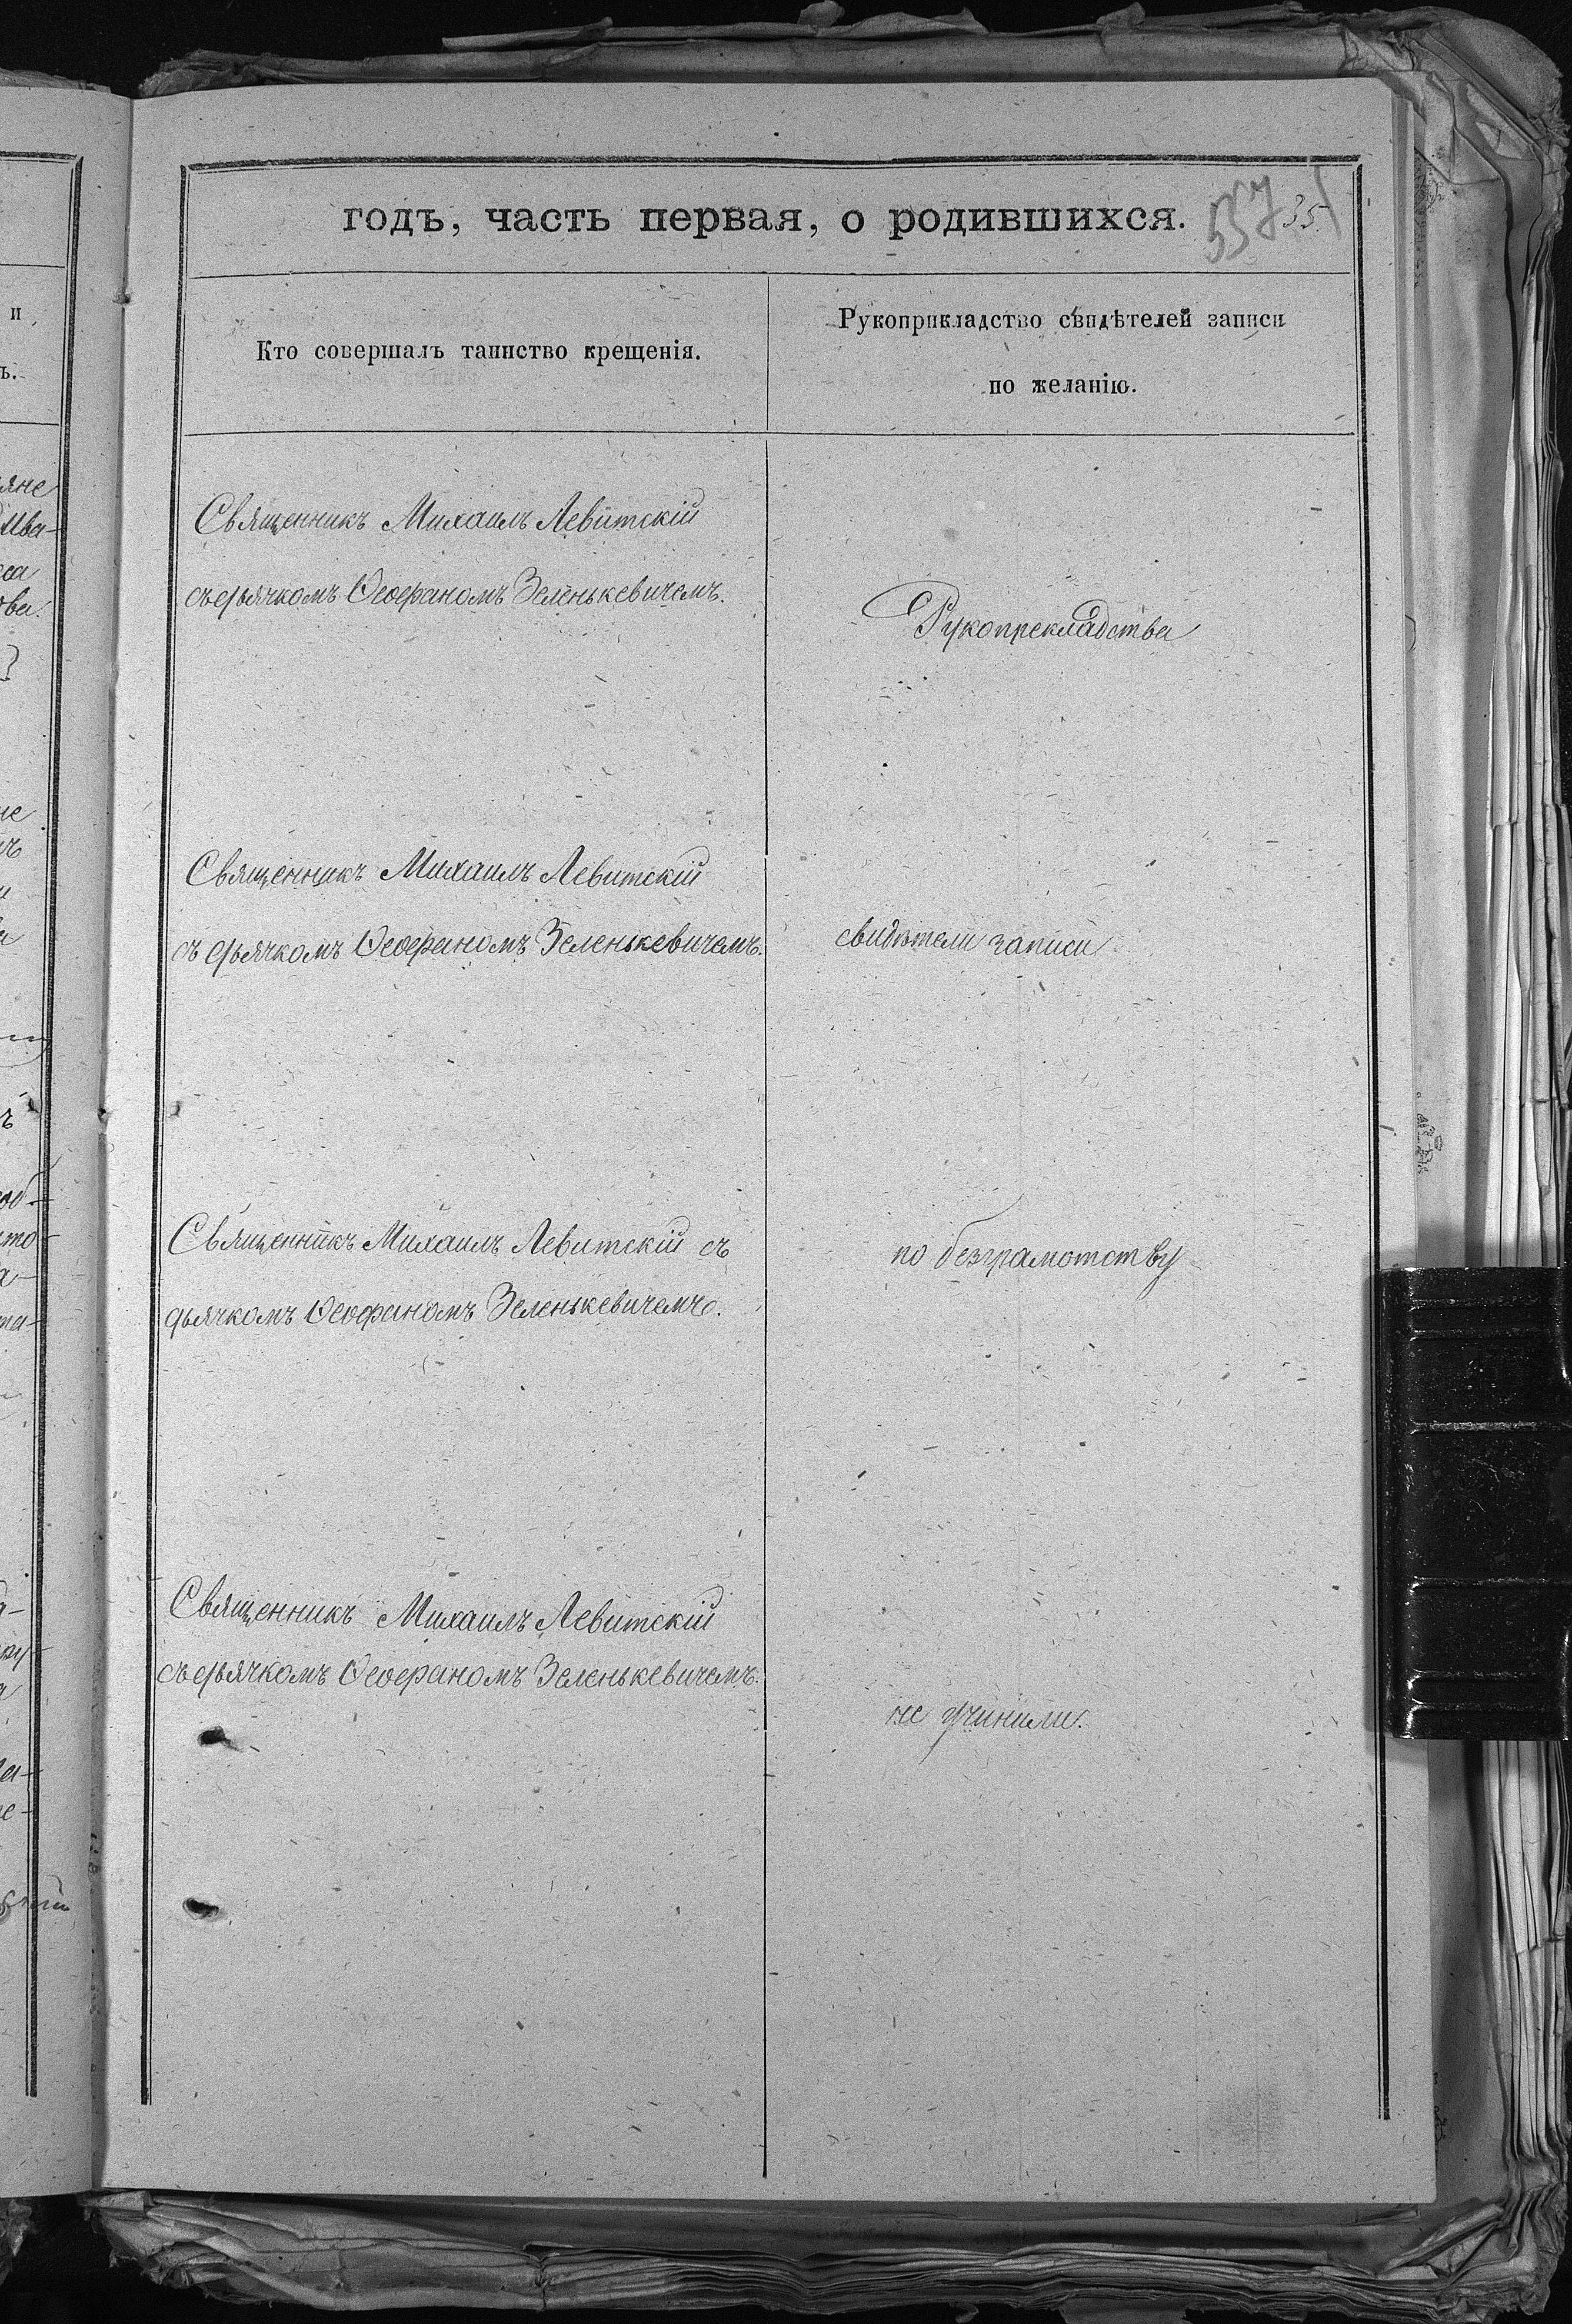 годъ, часть первая, о родившихся.
557 35
Кто совершалъ таинство крещенія.
Рукоприкладство свидѣтелей записи
по желанію.
Священникъ Михаилъ Левитскій
съ дьячкомъ Ѳеофаномъ Зеленькевичемъ.
Рукопрекладства
Священникъ Михаилъ Левитскій
съ дьячкомъ Ѳеофаномъ Зеленькевичемъ.
свидѣтели записи
Священникъ Михаилъ Левитскій съ
дьячкомъ Ѳеофаномъ Зеленькевичемъ.
по безграмотству
Священникъ Михаилъ Левитскій
съ дьячкомъ Ѳеофаномъ Зеленькевичемъ.
не учинили.